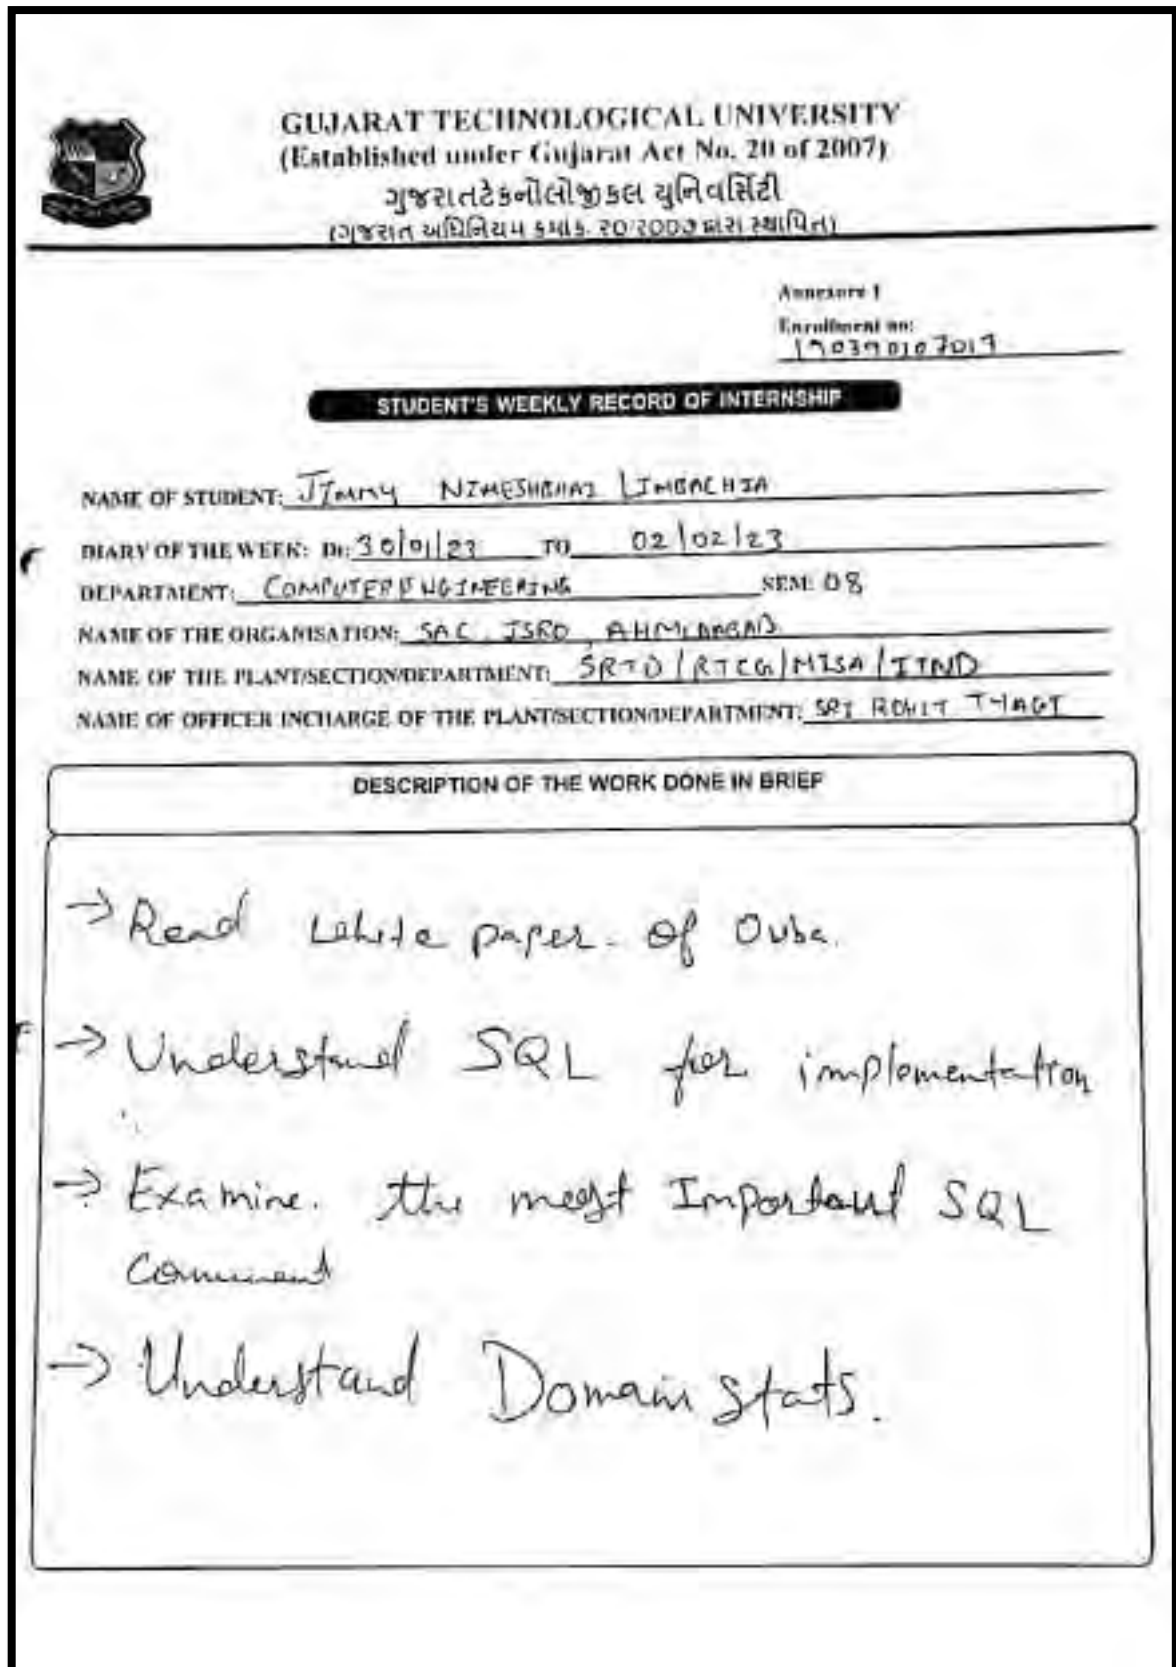 GUJARAT TECHNOLOGICAL UNIVERSITY
(Established under Gujarat Act No. 20 of 2007)
ગુજરાતટેકનોલોજીકલ યુનિવર્સિટી
(ગુજરાત અધિનિયમ ક્રમાંક: ૨૦/૨૦૦૭ દ્વારા સ્થાપિત)
Annexure I
Enrollment no:
190390107017
STUDENT'S WEEKLY RECORD OF INTERNSHIP
NAME OF STUDENT: JIMMY NIMESHBHAI LIMBACHIA
DIARY OF THE WEEK: Dt: 30/01/23 TO 02/02/23
DEPARTMENT: COMPUTER ENGINEERING SEM: 08
NAME OF THE ORGANISATION: SAC, ISRO, AHMEDABAD
NAME OF THE PLANT/SECTION/DEPARTMENT: SRTD/RTCG/MISA/ITND
NAME OF OFFICER INCHARGE OF THE PLANT/SECTION/DEPARTMENT: SRI ROHIT TYAGI
DESCRIPTION OF THE WORK DONE IN BRIEF
→ Read white paper of
→ Understand SQL for implementation
→ Examine. the most Important SQL
Comment
→ Understand Domain stats.